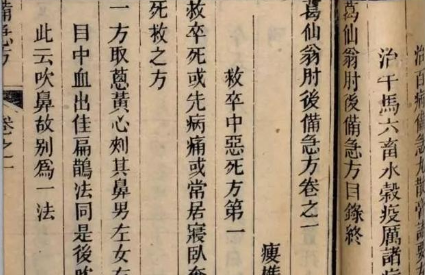 治百病備急丸散膏諸要方
治牛馬六畜水穀疫厲諸病
葛仙翁肘後備急方目錄終
葛仙翁肘後備急方卷之一
瘦樵
救卒中惡死方第一
救卒死或先病痛或常居寢臥奄
死救之方
一方取葱黃心刺其鼻男左女右
目中血出佳扁鵲法同是後
此云吹鼻故別爲一法
備急方
卷之一